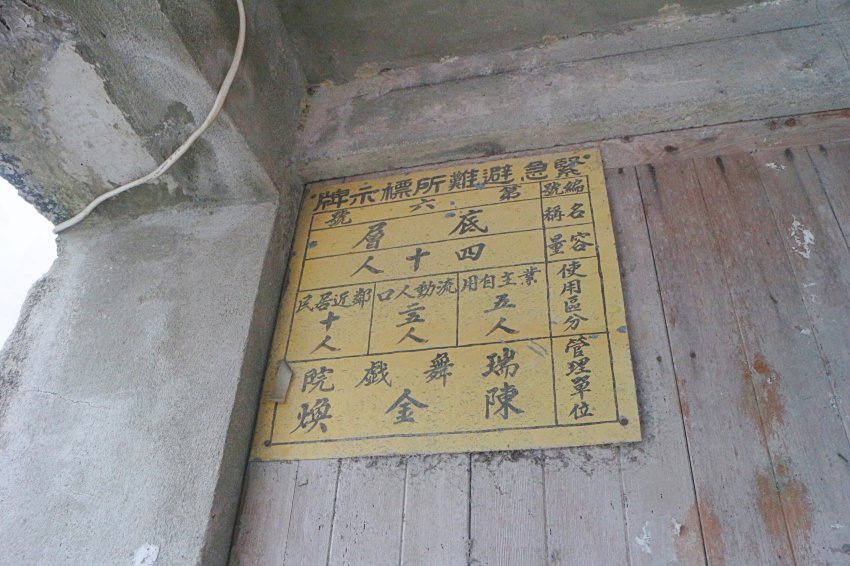 緊急避難所標示牌
編號 第六號
名稱 底層
容量 四十人
使用區分
業主自用 五人
流動人口 二五人
鄰近居民 十人
管理單位
瑞舞戯院
陳金煥